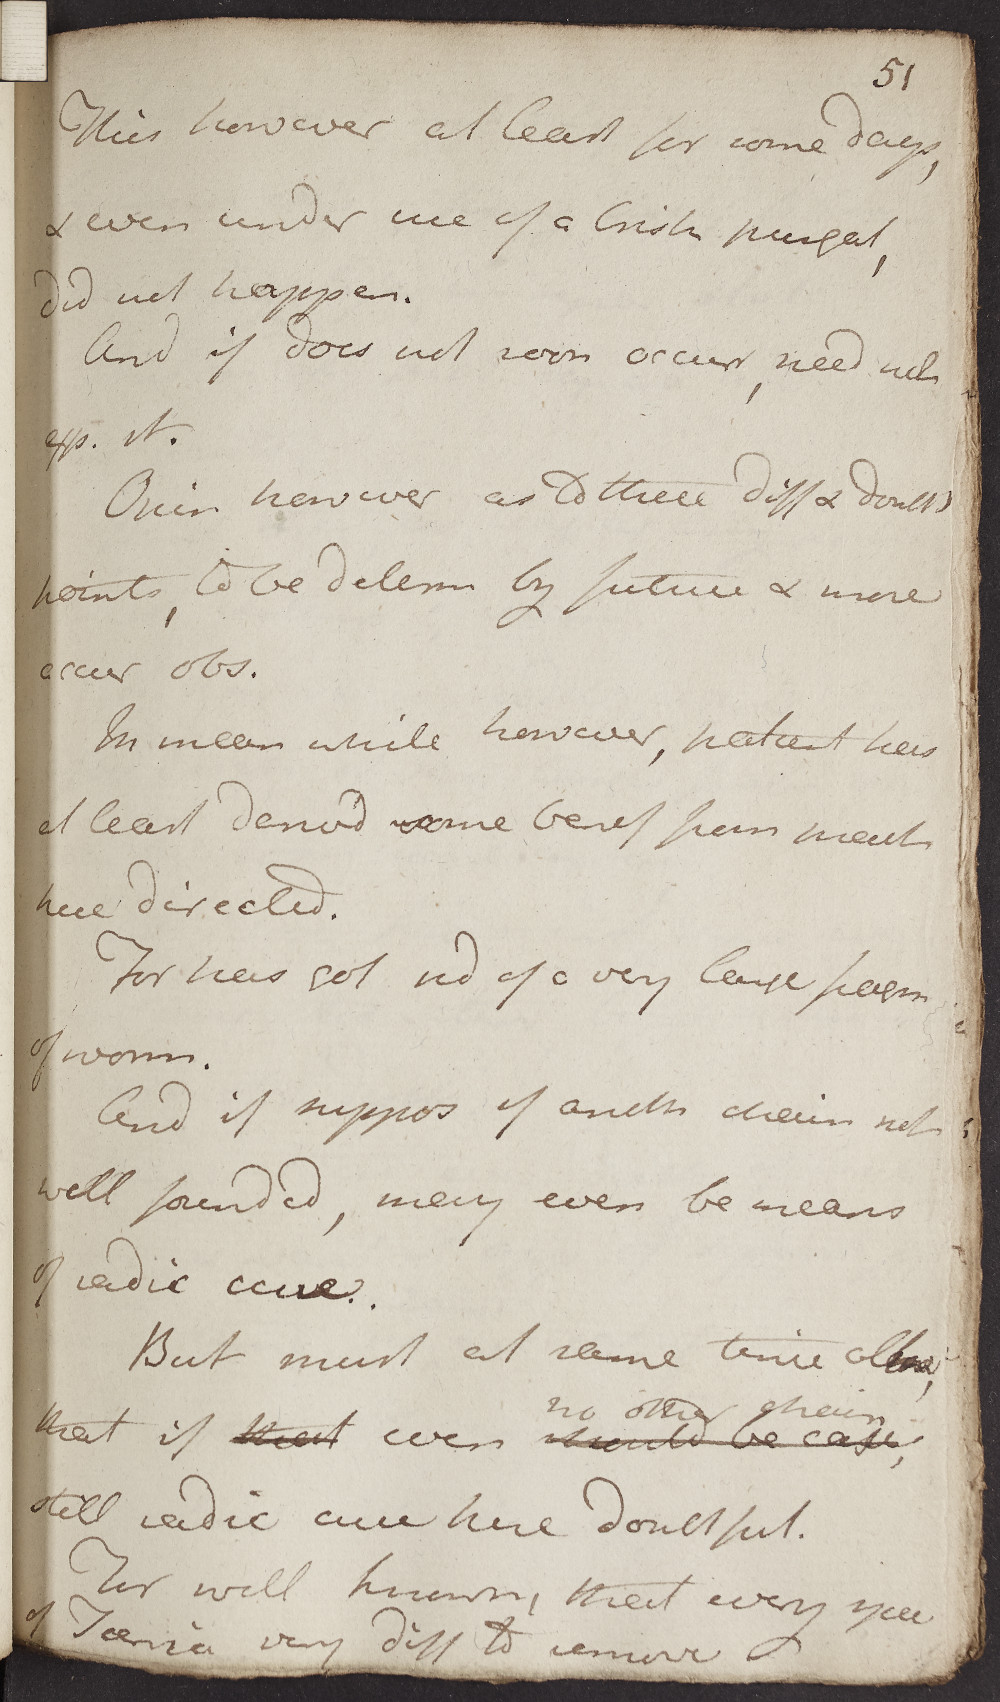 51
This however at least for some days,
& even under use of a brisk purgat,
did not happen.
And if does not soon occur, need not
exp. it.
Only however as to these diff & doubt
points, to be determ by future & more
accur obs.
In mean while however, patient has
at least deriv'd some benef from meas
here directed.
For has got rid of a very large fragm
of worm.
And if suppos of anoth chain not
well founded, may even be means
of radic cure.
But must at same time allow,
no other chain
that if that even should be case,
still radic cure here doubtful.
For well known, that every spec
of Taenia very diff to remove